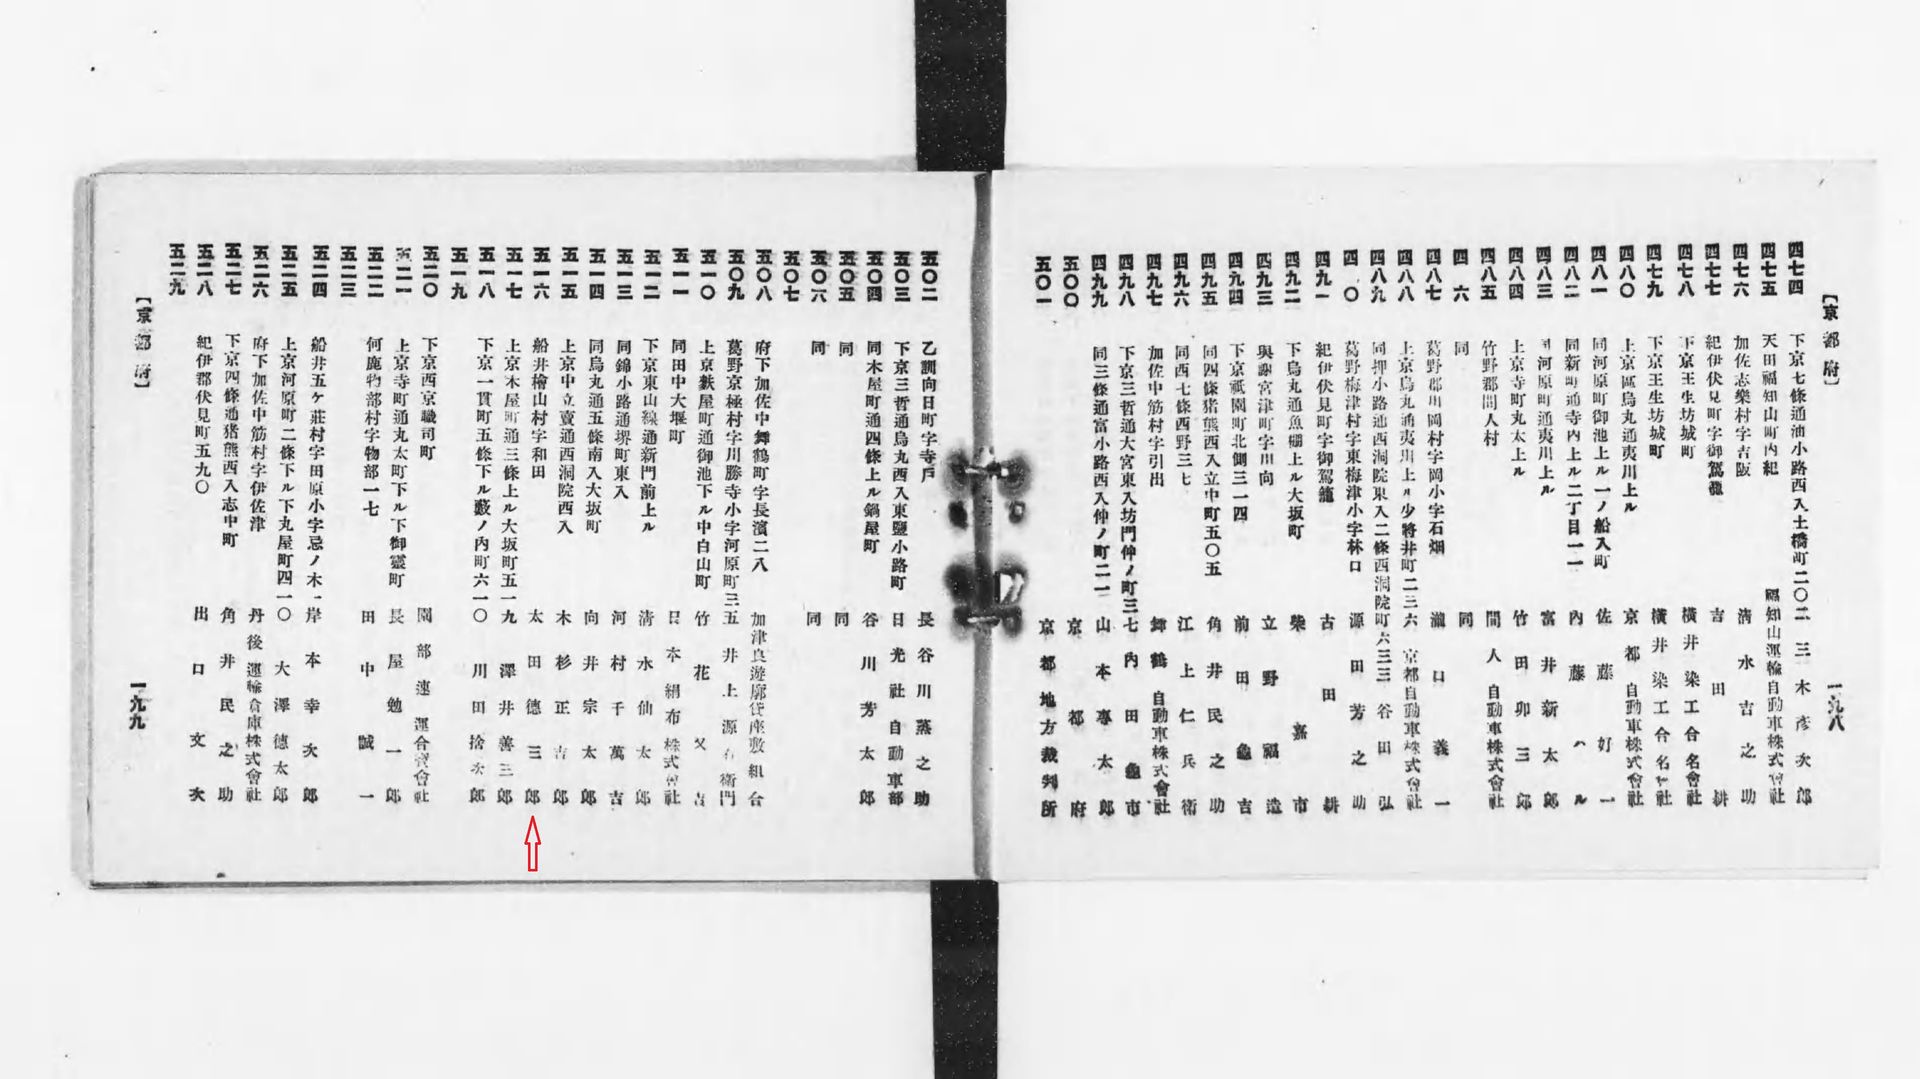 【京都府】
四七四 下京七條通油小路西入土橋町二〇二 三木彦次郎
四七五 天田福知山町内紀 福知山運輸自動車株式會社
四七六 加佐志樂村字吉阪 清水吉之助
四七七 紀伊伏見町字御駕籠 吉田耕
四七八 下京壬生坊城町 横井染工合名會社
四七九 下京壬生坊城町 横井染工合名會社
四八〇 上京區烏丸通夷川上ル 京都自動車株式會社
四八一 同河原町御池上ル一ノ船入町 佐藤好一
四八二 同新町通寺内上ル二丁目一一 内藤ハル
四八三 同河原町通夷川上ル 富井新太郎
四八四 上京寺町丸太上ル 竹田卯三郎
四八五 竹野郡間人村 間人自動車株式會社
四 六 同 同
四八七 葛野郡川岡村字岡小字石畑 瀧口義一
四八八 上京烏丸通夷川上ル少將井町二三六 京都自動車株式會社
四八九 同押小路通西洞院東入二條西洞院町六三三 谷田弘
四 〇 葛野梅津村字東梅津小字林口 源田芳之助
四九一 紀伊伏見町字御駕籠 古田耕
四九二 下烏丸通魚棚上ル大坂町 柴嘉市
四九三 與謝宮津町字川向 立野福造
四九四 下京祇園町北側三一四 前田龜吉
四九五 同四條猪熊西入立中町五〇五 角井民之助
四九六 同西七條西野三七 江上仁兵衛
四九七 加佐中筋村字引出 舞鶴自動車株式會社
四九八 下京三哲通大宮東入坊門仲ノ町三七 内田龜市
四九九 同三條通富小路西入仲ノ町二一 山本專太郎
五〇〇 京都府
五〇一 京都地方裁判所
一九八
五〇二 乙訓向日町字寺戸 長谷川蒸之助
五〇三 下京三哲通烏丸西入東鹽小路町 日光社自動車部
五〇四 同木屋町通四條上ル鍋屋町 谷川芳太郎
五〇五 同 同
五〇六 同 同
五〇七
五〇八 府下加佐中舞鶴町字長濱二八 加津良遊廓貸座敷組合
五〇九 葛野京極村字川勝寺小字河原町三五 井上源右衛門
五一〇 上京麩屋町通御池下ル中白山町 竹花又吉
五一一 同田中大堰町 日本絹布株式會社
五一二 下京東山線通新門前上ル 清水仙太郎
五一三 同錦小路通堺町東入 河村千萬吉
五一四 同烏丸通五條南入大坂町 向井宗太郎
五一五 上京中立賣通西洞院西入 木杉正吉郎
五一六 船井檜山村字和田 太田德三郎
五一七 上京木屋町通三條上ル大坂町五一九 澤井善三郎
五一八 下京一貫町五條下ル藪ノ内町六一〇 川田捨次郎
五一九
五二〇 下京西京職司町 園部連運合資會社
五二一 上京寺町通丸太町下ル下御靈町 長屋勉一郎
五二二 何鹿物部村字物部一七 田中誠一
五二三
五二四 船井五ケ莊村字田原小字忌ノ木一 岸本幸次郎
五二五 上京河原町二條下ル下丸屋町四一〇 大澤德太郎
五二六 府下加佐中筋村字伊佐津 丹後運輸倉庫株式會社
五二七 下京四條通猪熊西入志中町 角井民之助
五二八 紀伊郡伏見町五九〇 出口文次
五二九
【京都府】
一九九